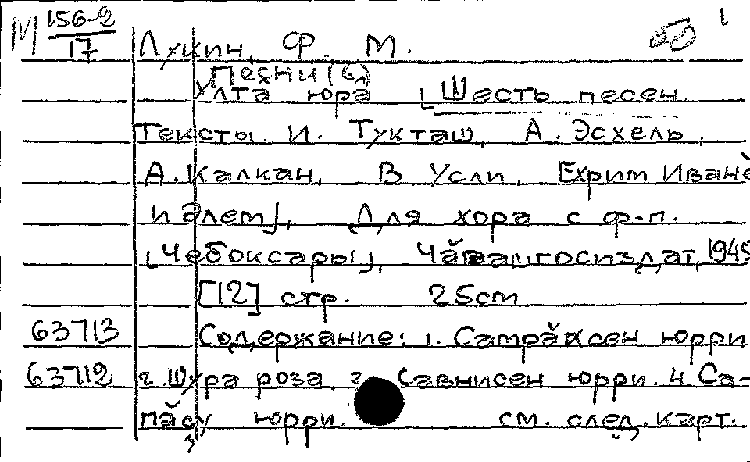 М 156-2/17 1
Лукин, Ф. М.
Песни (6)
Улта юра [Шесть песен.
Тексты И. Тукташ, А. Эсхель,
А. Калкан, В Усли, Ехрим Иванĕ
и Элем], Для хора с ф-п.
[Чебоксары], Чăвашгосиздат, 1949
[12] стр. 25cm
63713 Содержание: 1. юрри
63712 2. Шура роза. 3. Савнисен юрри. 4. Са-
пăçу юрри. см. след. карт.